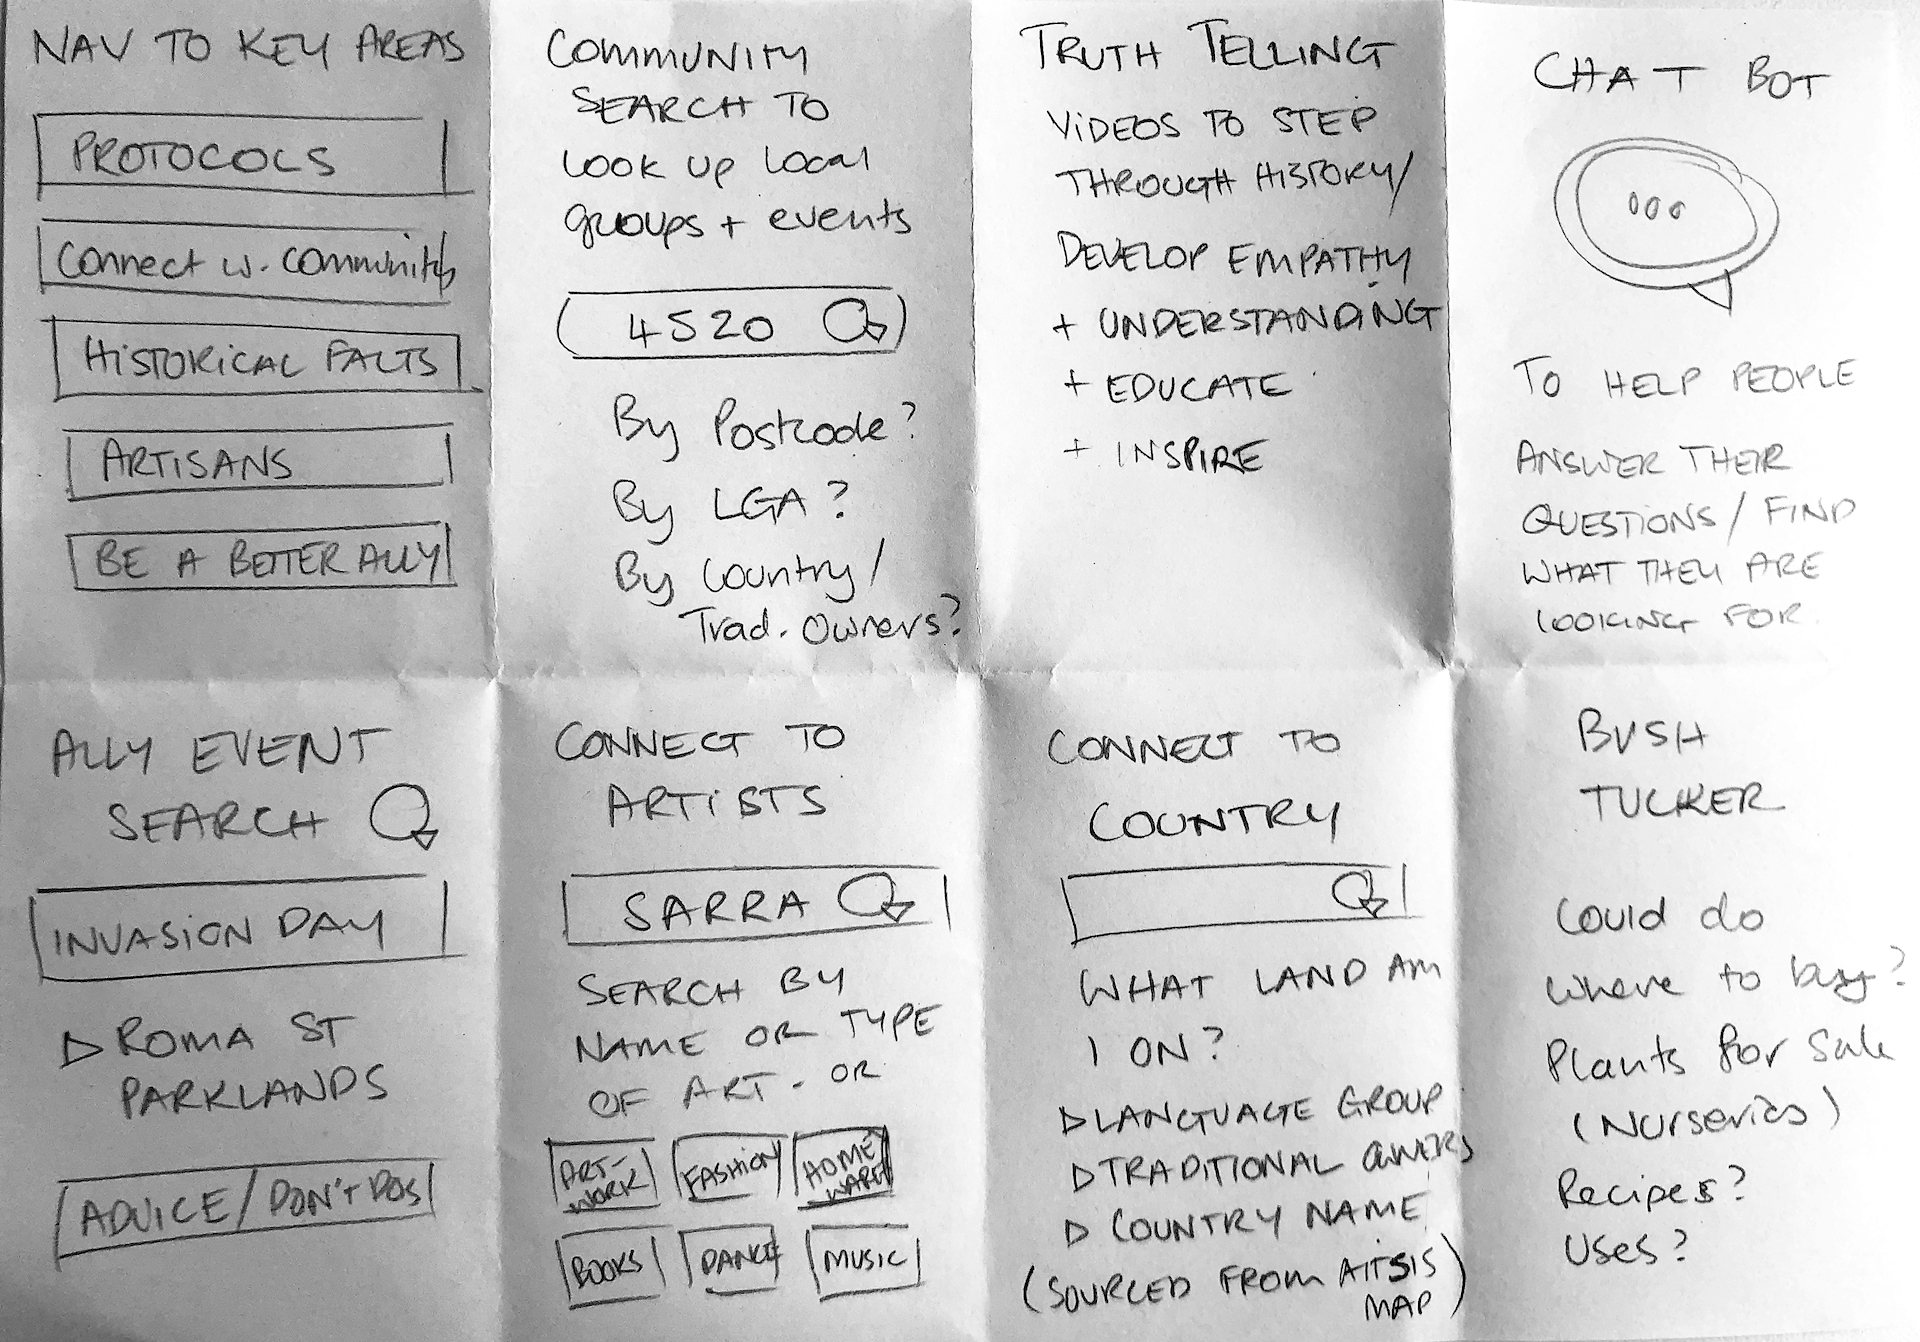 NAV TO KEY AREAS
PROTOCOLS
Connect w. community
HISTORICAL FACTS
ARTISANS
BE A BETTER ALLY
COMMUNITY
SEARCH TO
LOOK UP LOCAL
groups + events
4520
By Postcode?
By LGA?
By Country/
Trad. Owners?
TRUTH TELLING
VIDEOS TO STEP
THROUGH HISTORY/
DEVELOP EMPATHY
+ UNDERSTANDING
+ EDUCATE
+ INSPIRE
CHAT BOT
TO HELP PEOPLE
ANSWER THEIR
QUESTIONS/FIND
WHAT THEY ARE
LOOKING FOR
ALLY EVENT
SEARCH
INVASION DAY
ROMA ST
PARKLANDS
ADVICE/DON'T DOS
CONNECT TO
ARTISTS
SARRA
SEARCH BY
NAME OR TYPE
OF ART. OR
ART-
WORK
FASHION
HOME
WARE
BOOKS
DANCE
MUSIC
CONNECT TO
COUNTRY
WHAT LAND AM
I ON?
LANGUAGE GROUP
TRADITIONAL OWNERS
COUNTRY NAME
(SOURCED FROM AITSIS
MAP)
BUSH
TUCKER
Could do
where to buy?
Plants for sale
(Nurseries)
Recipes?
Uses?